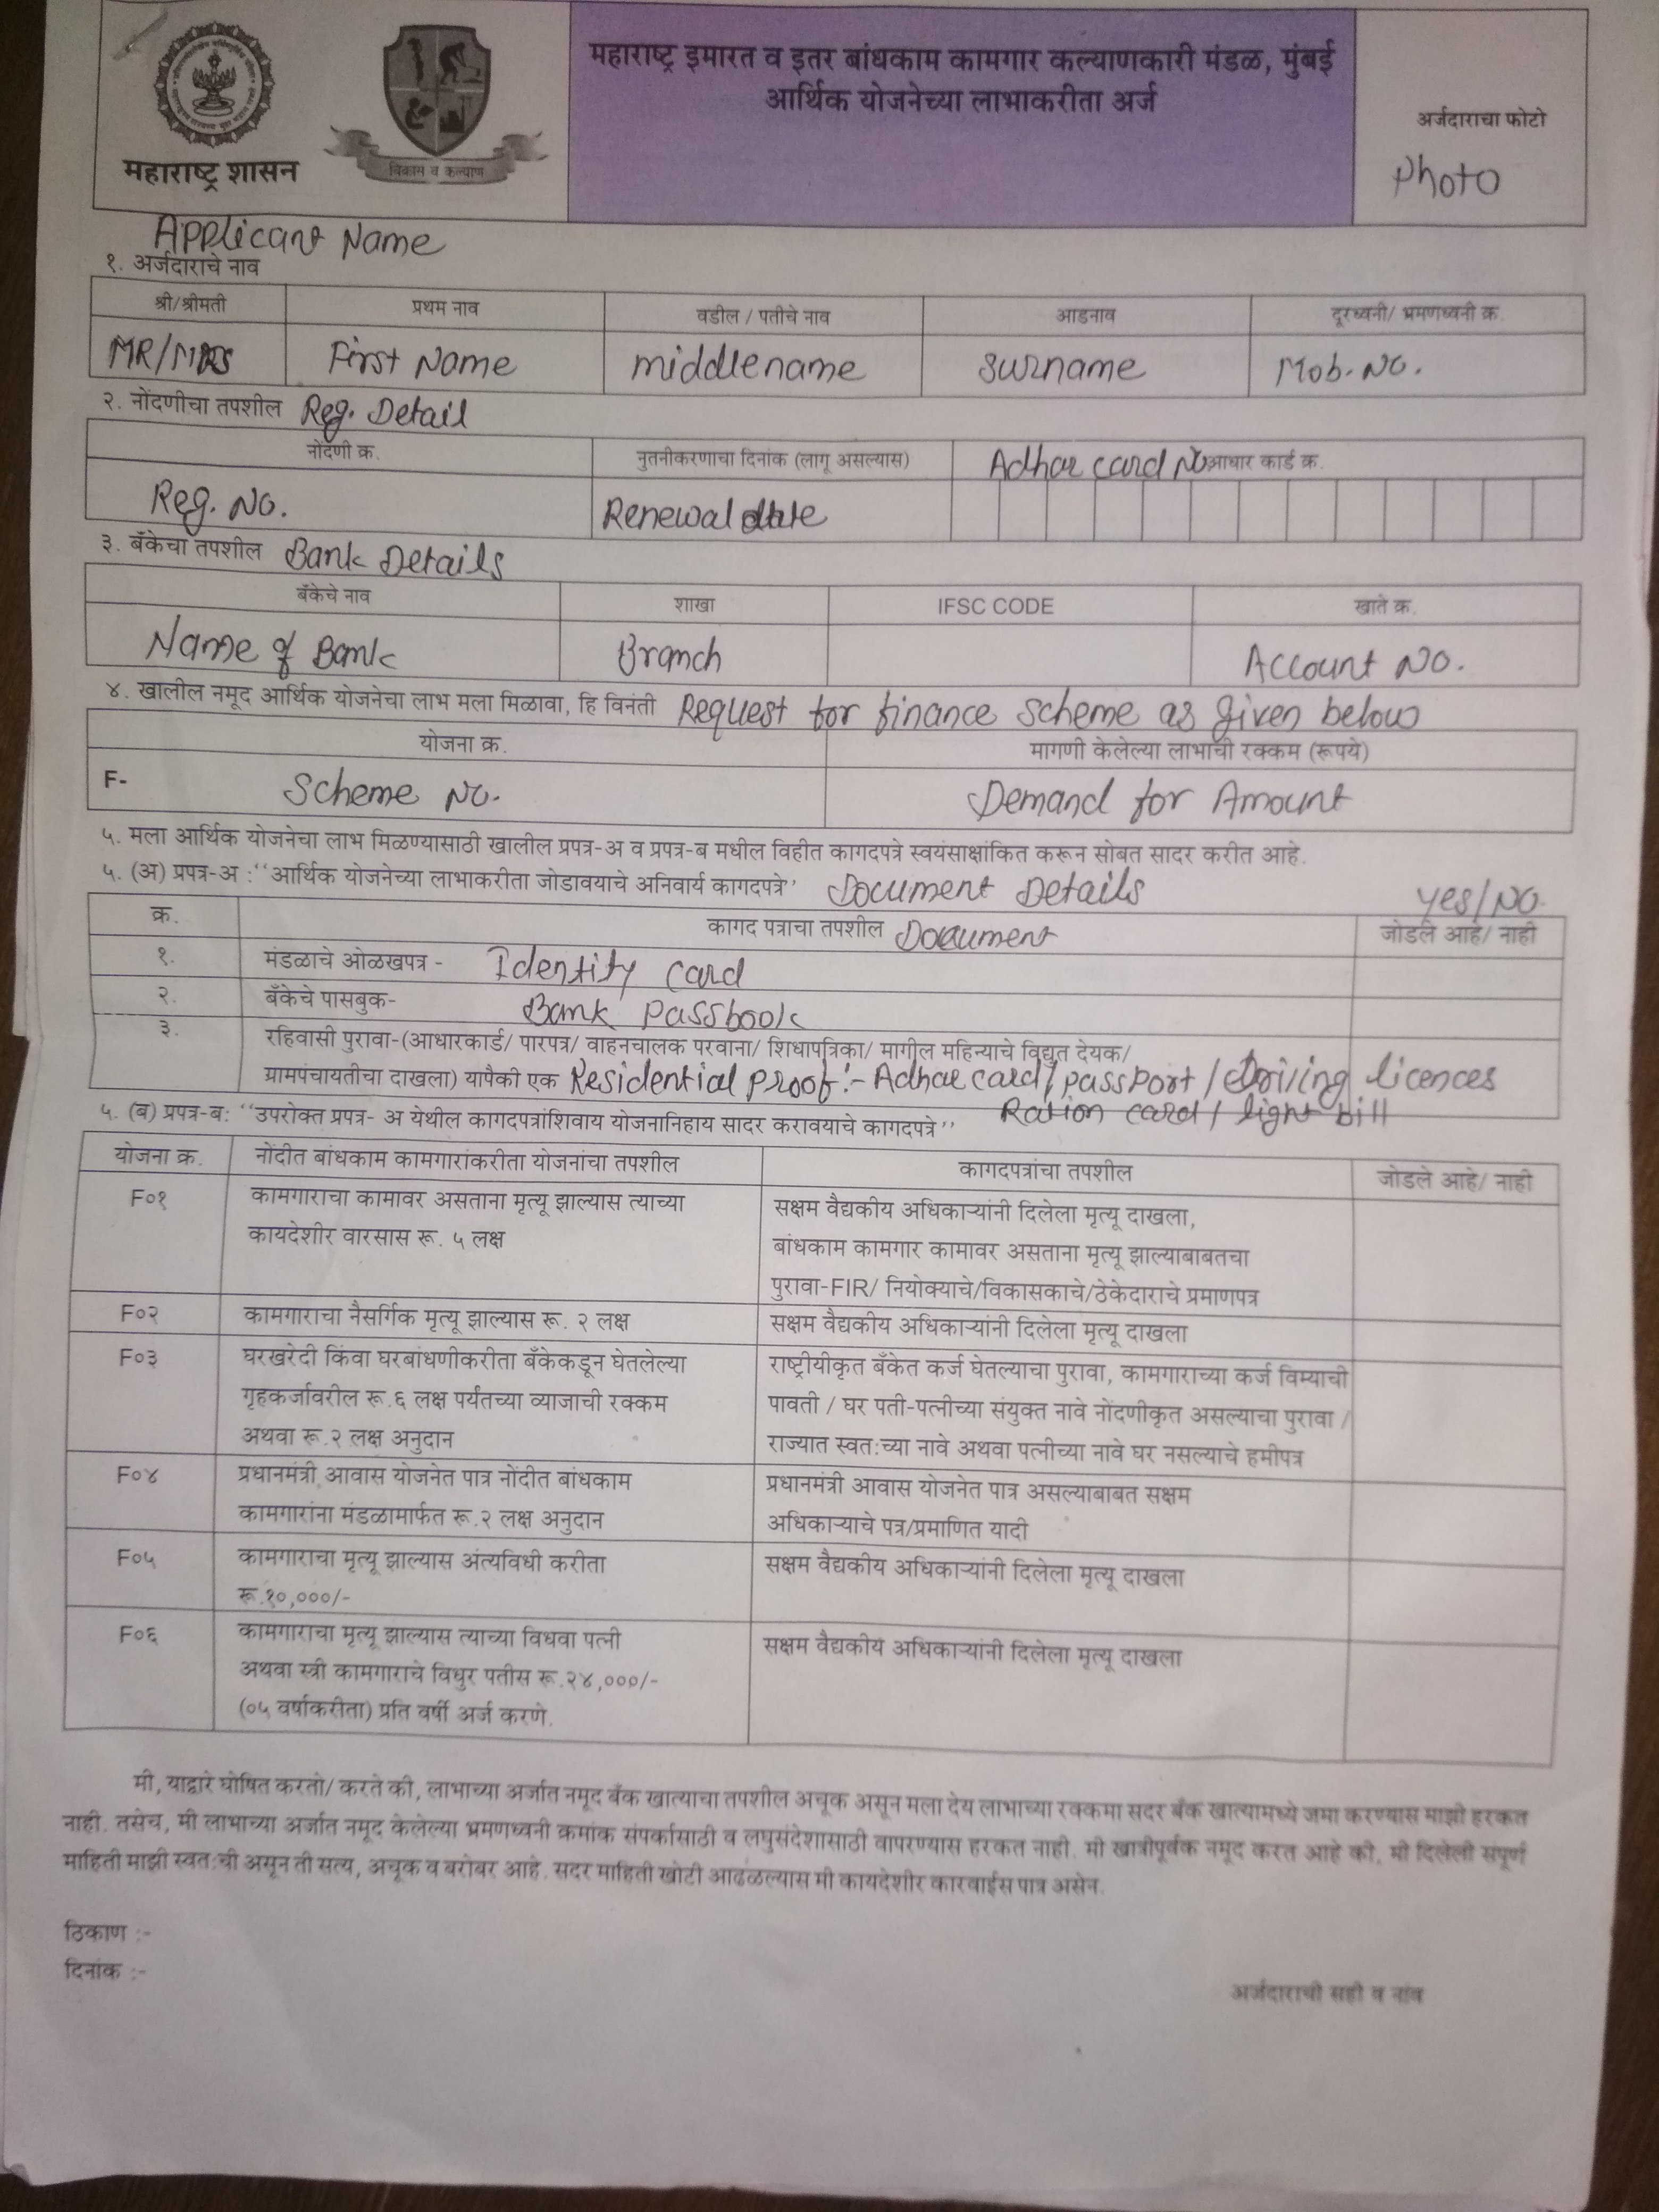 महाराष्ट्र शासन
विकास व कल्याण
महाराष्ट्र इमारत व इतर बांधकाम कामगार कल्याणकारी मंडळ, मुंबई
आर्थिक योजनेच्या लाभाकरीता अर्ज
अर्जदाराचा फोटो
Photo
Applicant Name
१. अर्जदाराचे नाव
श्री/श्रीमती प्रथम नाव वडील / पतीचे नाव आडनाव दूरध्वनी/ भ्रमणध्वनी क्र.
MR/MRS First Name middlename surname Mob. No.
२. नोंदणीचा तपशील Reg. Detail
नोंदणी क्र. नुतनीकरणाचा दिनांक (लागू असल्यास) Adhar card No आधार कार्ड क्र.
Reg. No. Renewal date
३. बँकेचा तपशील Bank Details
बँकेचे नाव शाखा IFSC CODE खाते क्र.
Name of Bank Branch Account No.
४. खालील नमूद आर्थिक योजनेचा लाभ मला मिळावा, हि विनंती Request for finance scheme as given below
योजना क्र. मागणी केलेल्या लाभाची रक्कम (रूपये)
F- Scheme No. Demand for Amount
५. मला आर्थिक योजनेचा लाभ मिळण्यासाठी खालील प्रपत्र-अ व प्रपत्र-ब मधील विहीत कागदपत्रे स्वयंसाक्षांकित करून सोबत सादर करीत आहे.
५. (अ) प्रपत्र-अ :"आर्थिक योजनेच्या लाभाकरीता जोडावयाचे अनिवार्य कागदपत्रे" Document Details Yes/No.
क्र. कागद पत्राचा तपशील Document जोडले आहे/ नाही
१. मंडळाचे ओळखपत्र - Identity card
२. बँकेचे पासबुक- Bank Passbook
३. रहिवासी पुरावा-(आधारकार्ड/ पारपत्र/ वाहनचालक परवाना/ शिधापत्रिका/ मागील महिन्याचे विद्युत देयक/
ग्रामपंचायतीचा दाखला) यापैकी एक Residential Proof:- Adhar card/ passport / Driving licences
Ration card / light bill
५. (ब) प्रपत्र-ब: "उपरोक्त प्रपत्र- अ येथील कागदपत्रांशिवाय योजनानिहाय सादर करावयाचे कागदपत्रे"
योजना क्र. नोंदीत बांधकाम कामगारांकरीता योजनांचा तपशील कागदपत्रांचा तपशील जोडले आहे/ नाही
F०१ कामगाराचा कामावर असताना मृत्यू झाल्यास त्याच्या
कायदेशीर वारसास रू. ५ लक्ष
सक्षम वैद्यकीय अधिकाऱ्यांनी दिलेला मृत्यू दाखला,
बांधकाम कामगार कामावर असताना मृत्यू झाल्याबाबतचा
पुरावा-FIR/ नियोक्याचे/विकासकाचे/ठेकेदाराचे प्रमाणपत्र
F०२ कामगाराचा नैसर्गिक मृत्यू झाल्यास रू. २ लक्ष सक्षम वैद्यकीय अधिकाऱ्यांनी दिलेला मृत्यू दाखला
F०३ घरखरेदी किंवा घरबांधणीकरीता बँकेकडून घेतलेल्या
गृहकर्जावरील रू.६ लक्ष पर्यंतच्या व्याजाची रक्कम
अथवा रू.२ लक्ष अनुदान
राष्ट्रीयीकृत बँकेत कर्ज घेतल्याचा पुरावा, कामगाराच्या कर्ज विम्याची
पावती / घर पती-पत्नीच्या संयुक्त नावे नोंदणीकृत असल्याचा पुरावा /
राज्यात स्वत:च्या नावे अथवा पत्नीच्या नावे घर नसल्याचे हमीपत्र
F०४ प्रधानमंत्री आवास योजनेत पात्र नोंदीत बांधकाम
कामगारांना मंडळामार्फत रू.२ लक्ष अनुदान
प्रधानमंत्री आवास योजनेत पात्र असल्याबाबत सक्षम
अधिकाऱ्याचे पत्र/प्रमाणित यादी
F०५ कामगाराचा मृत्यू झाल्यास अंत्यविधी करीता
रू.१०,०००/-
सक्षम वैद्यकीय अधिकाऱ्यांनी दिलेला मृत्यू दाखला
F०६ कामगाराचा मृत्यू झाल्यास त्याच्या विधवा पत्नी
अथवा स्त्री कामगाराचे विधुर पतीस रू.२४,०००/-
(०५ वर्षाकरीता) प्रति वर्षी अर्ज करणे.
सक्षम वैद्यकीय अधिकाऱ्यांनी दिलेला मृत्यू दाखला
मी, याद्वारे घोषित करतो/ करते की, लाभाच्या अर्जात नमूद बँक खात्याचा तपशील अचूक असून मला देय लाभाच्या रक्कमा सदर बँक खात्यामध्ये जमा करण्यास माझी हरकत
नाही. तसेच, मी लाभाच्या अर्जात नमूद केलेल्या भ्रमणध्वनी क्रमांक संपर्कासाठी व लघुसंदेशासाठी वापरण्यास हरकत नाही. मी खात्रीपूर्वक नमूद करत आहे की, मी दिलेली संपूर्ण
माहिती माझी स्वत:ची असून ती सत्य, अचूक व बरोबर आहे. सदर माहिती खोटी आढळल्यास मी कायदेशीर कारवाईस पात्र असेन.
ठिकाण :-
दिनांक :-
अर्जदाराची सही व नांव